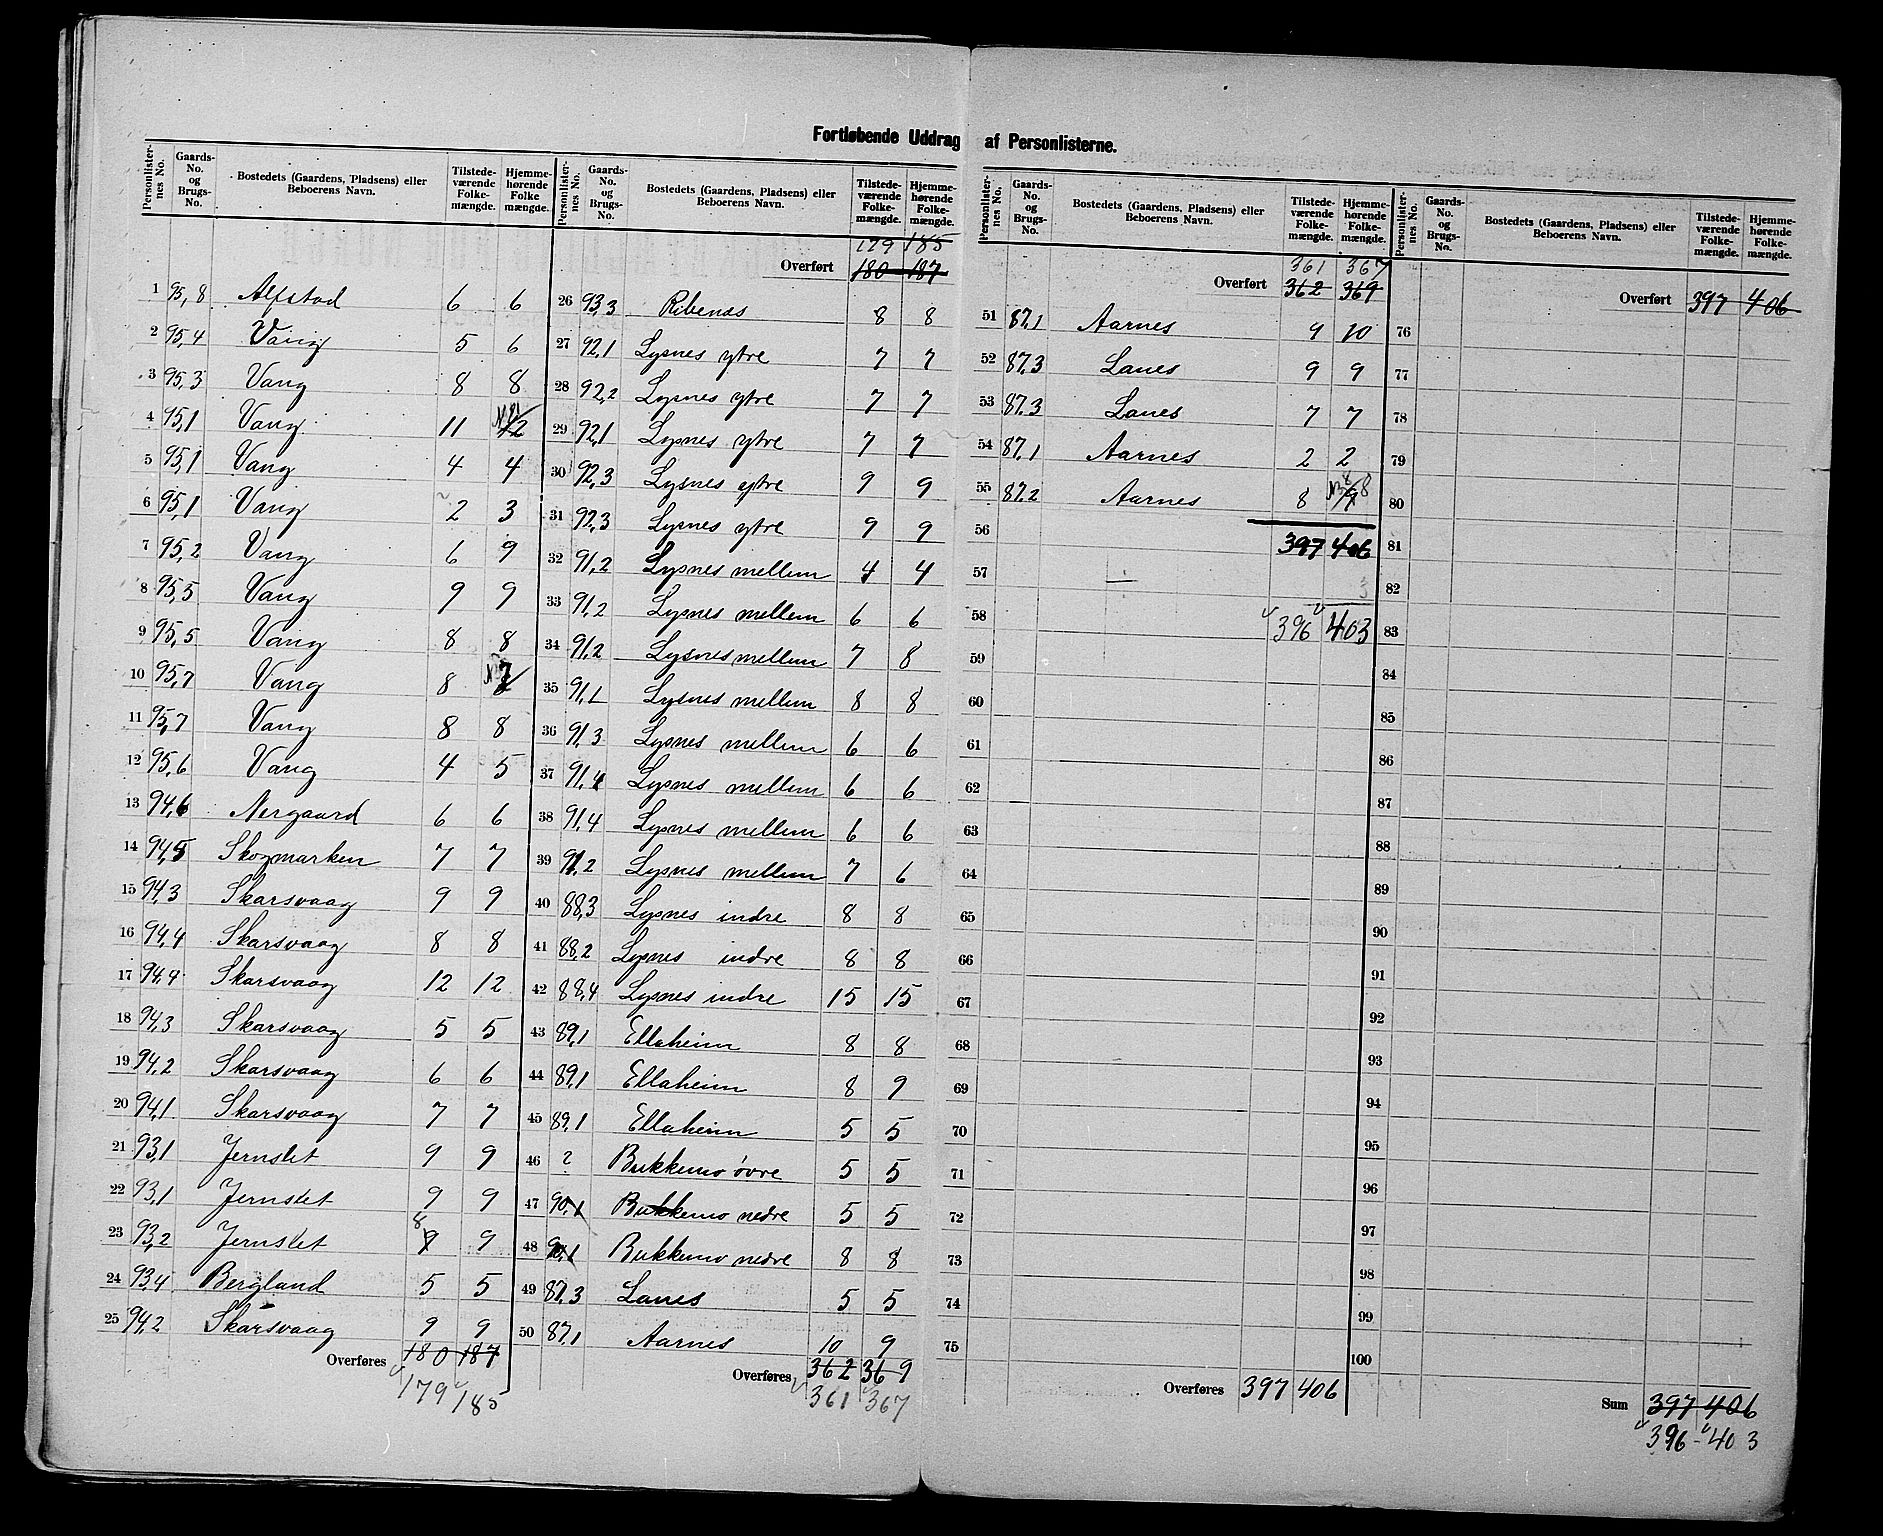 Fortløbende Uddrag af Personlisterne.
Personlister-nes No. Gaards-No. og Brugs-No. Bostedets (Gaardens, Pladsens) eller Beboerens Navn. Tilstede-værende Folke-mængde. Hjemme-hørende Folke mængde.
1 95,8 Alfstad 6 6
2 95,4 Vang 5 6
3 95,3 Vang 8 8
4 95,1 Vang 11 12
5 95,1 Vang 4 4
6 95,1 Vang 2 3
7 95,2 Vang 6 9
8 95,5 Vang 9 9
9 95,5 Vang 8 8
10 95,7 Vang 8 7
11 95,7 Vang 8 8
12 95,6 Vang 4 5
13 94,6 Nergaard 6 6
14 94,5 Skogmarken 7 7
15 94,3 Skarsvaag 9 9
16 94,4 Skarsvaag 8 8
17 94,4 Skarsvaag 12 12
18 94,3 Skarsvaag 5 5
19 94,2 Skarsvaag 6 6
20 94,1 Skarsvaag 7 7
21 93,1 Jernslet 9 9
22 93,1 Jernslet 9 9
23 93,2 Jernslet 8 9 9
24 93,4 Bergland 5 5
25 94,2 Skarsvaag 9 9
Overføres 180 187
179 185
Personlister-nes No. Gaards-No. og Brugs-No. Bostedets (Gaardens, Pladsens) eller Beboerens Navn. Tilstede-værende Folke-mængde. Hjemme-hørende Folke-mængde.
179 185
Overført 180 187
26 93,3 Ribenes 8 8
27 92,1 Lysnes ytre 7 7
28 92,2 Lysnes ytre 7 7
29 92,1 Lysnes ytre 7 7
30 92,3 Lysnes ytre 9 9
31 92,3 Lysnes ytre 9 9
32 91,2 Lysnes mellem 4 4
33 91,2 Lysnes mellem 6 6
34 91,2 Lysnes mellem 7 8
35 91,1 Lysnes mellem 8 8
36 91,3 Lysnes mellem 6 6
37 91,4 Lysnes mellem 6 6
38 91,4 Lysnes mellem 6 6
39 91,2 Lysnes mellem 7 6
40 88,3 Lysnes indre 8 8
41 88,2 Lysnes indre 8 8
42 88,4 Lysnes indre 15 15
43 89,1 Ellaheim 8 8
44 89,1 Ellaheim 8 9
45 89,1 Ellaheim 5 5
46 2 Bukkemo øvre 5 5
47 90,1 Bukkemo nedre 5 5
48 90,1 Bukkemo nedre 8 8
49 87,3 Lanes 5 5
50 87,1 Aarnes 10 9
Overføres 362 369
361 367
Personlister-nes No. Gaards-No. og Brugs-No. Bostedets (Gaardens, Pladsens) eller Beboerens Navn. Tilstede-værende Folke-mængde. Hjemme-hørende Folke-mængde.
361 367
Overført 362 369
51 87,1 Aarnes 9 10
52 87,3 Lanes 9 9
53 87,3 Lanes 7 7
54 87,1 Aarnes 2 2
55 87,2 Aarnes 8 9 8
56 397 406
57
58 396 403
59
60
61
62
63
64
65
66
67
68
69
70
71
72
73
74
75
Overføres 397 406
Personlister-nes No. Gaards-No. og Brugs-No. Bostedets (Gaardens, Pladsens) eller Beboerens Navn. Tilstede-værende Folke-mængde. Hjemme-hørende Folke-mængde.
Overført 397 406
76
77
78
79
80
81
82
83
84
85
86
87
88
89
90
91
92
93
94
95
96
97
98
99
100
Sum 397 406
396 - 403